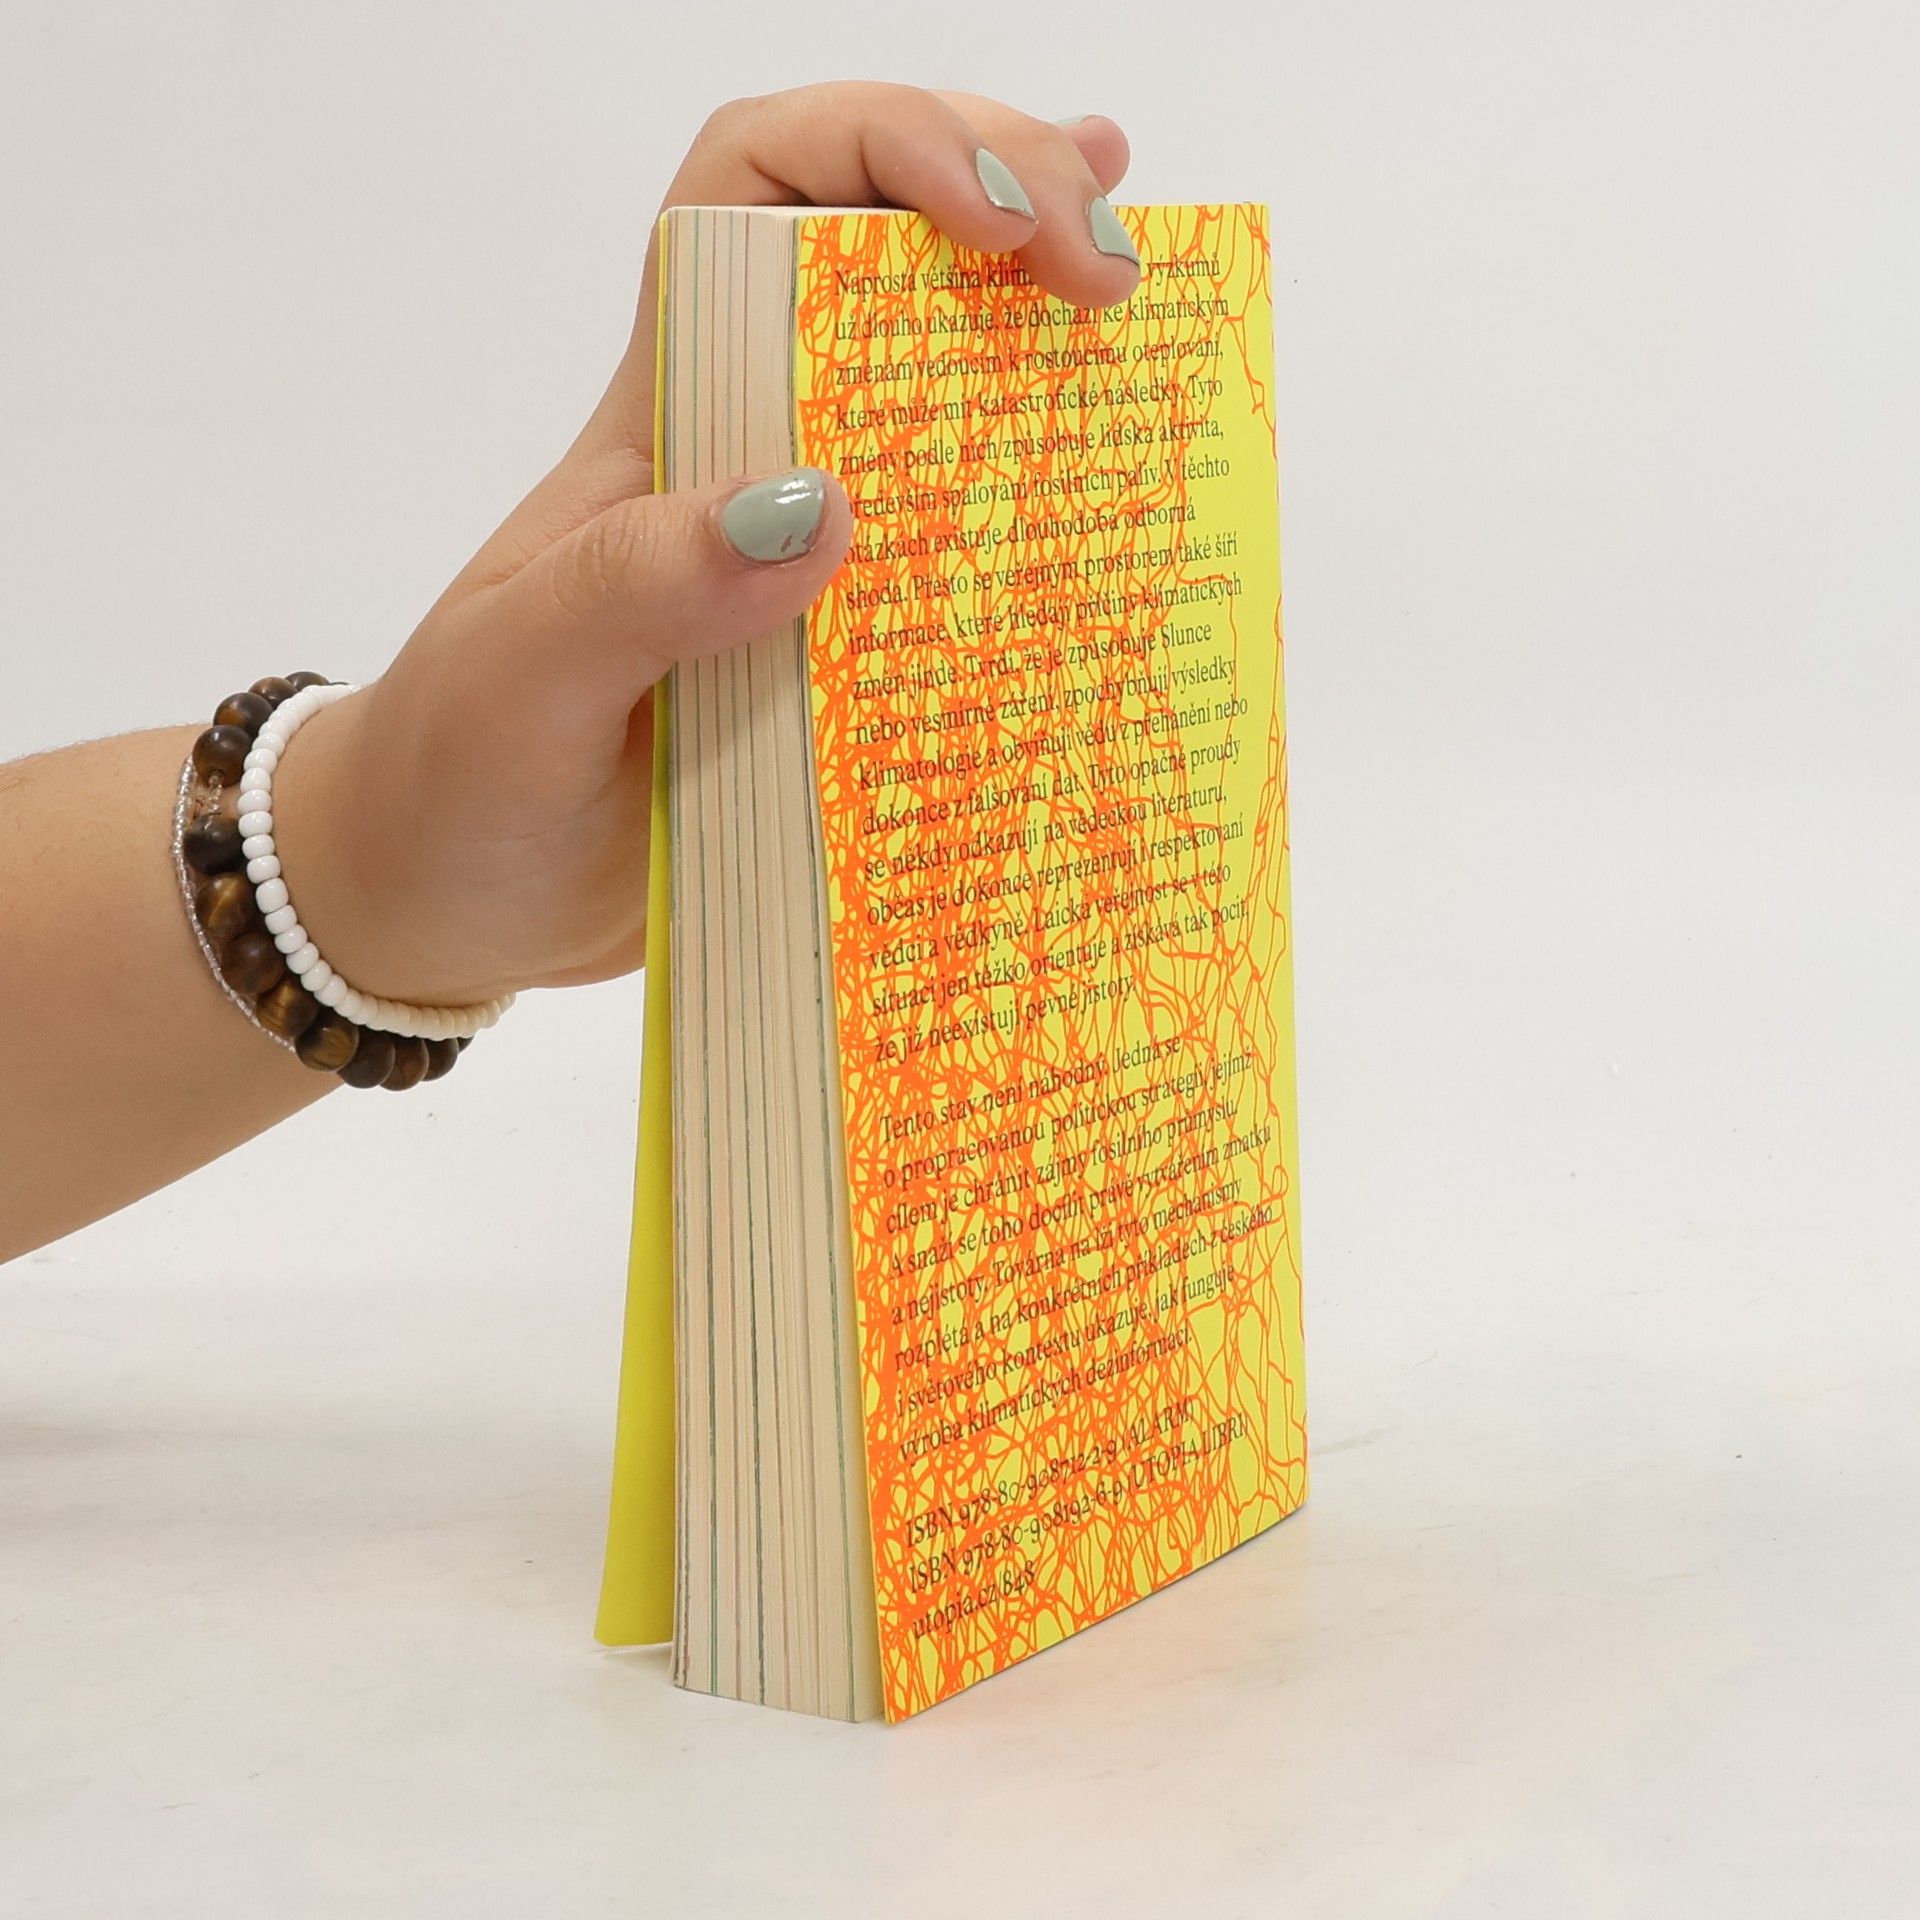 Naprostá většina klim výzkumů
už dlouho ukazuje, že dochází ke klimatickým
změnám vedoucím k rostoucímu oteplování,
které může mít katastrofické následky. Tyto
změny podle nich způsobuje lidská aktivita,
především spalování fosilních paliv. V těchto
otázkách existuje dlouhodobá odborná
shoda. Přesto se veřejným prostorem také šíří
informace, které hledají příčiny klimatických
změn jinde. Tvrdí, že je způsobuje Slunce
nebo vesmírné záření, zpochybňují výsledky
klimatologie a obviňují vědu z přehánění nebo
dokonce z falšování dat. Tyto opačné proudy
se někdy odkazují na vědeckou literaturu,
občas je dokonce reprezentují i respektovaní
vědci a vědkyně. Laická veřejnost se v této
situaci jen těžko orientuje a získává tak pocit,
že již neexistují pevné jistoty.
Tento stav není náhodný. Jedná se
o propracovanou politickou strategii, jejímž
cílem je chránit zájmy fosilního průmyslu.
A snaží se toho docílit právě vytvářením zmatku
a nejistoty. Továrna na lži tyto mechanismy
rozplétá a na konkrétních příkladech z českého
i světového kontextu ukazuje, jak funguje
výroba klimatických dezinformací.
ISBN 978-80-908712-2-9 (ALARM)
ISBN 978-80-908192-6-9 (UTOPIA LIBRI)
utopia.cz/848